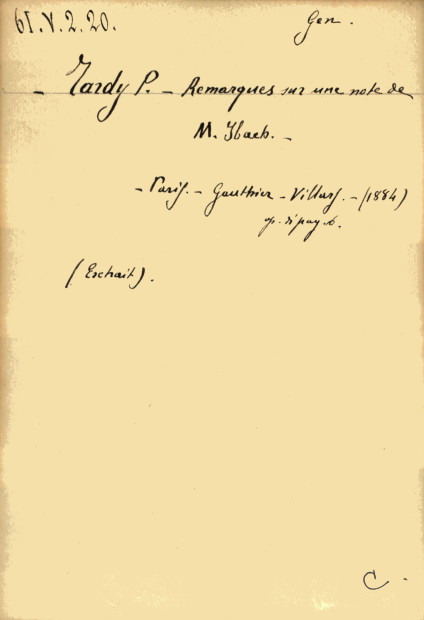 61.V.2.20.
Gen.
- Tardy P. - Remarques sur une note de
M. Ibach. -
- Paris. - Gauthier - Villars. - (1884)
op. di pag. 6.
(Estrait).
C.